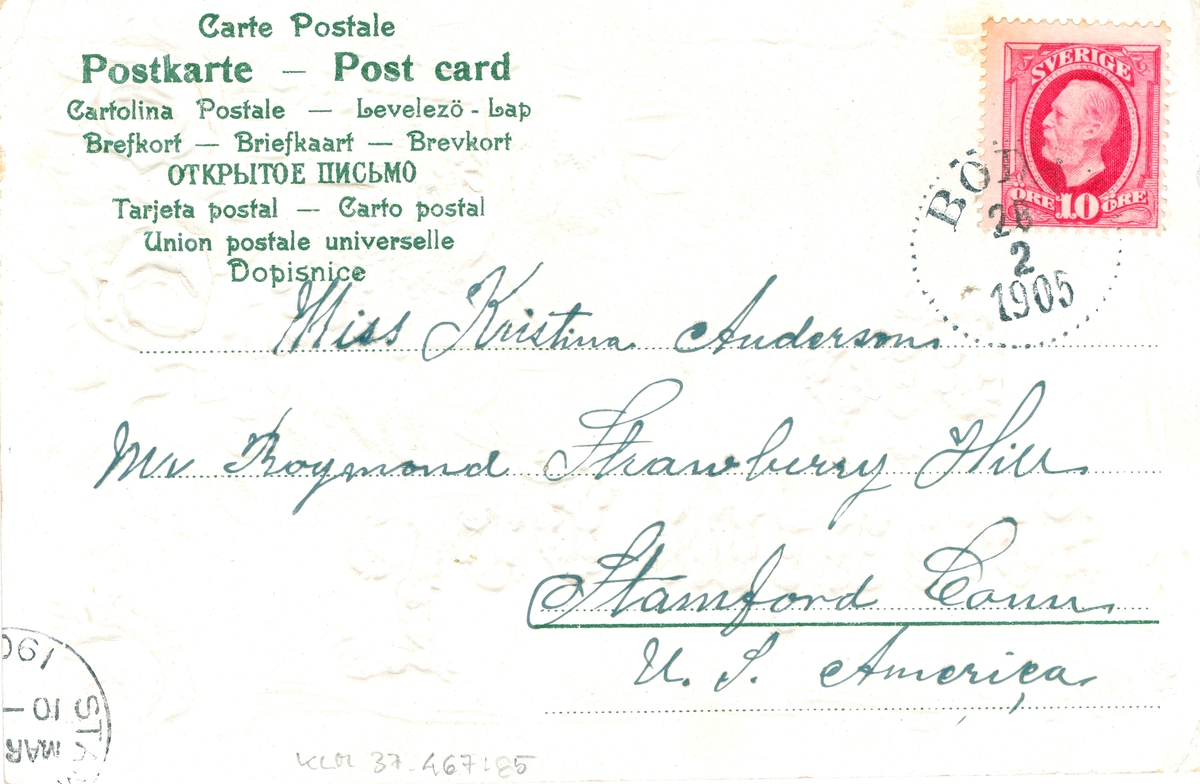 Carte Postale
Postkarte — Post card
Cartolina Postale — Levelezö - Lap
Brefkort — Briefkaart — Brevkort
ОТКРЫТОЕ ПИСЬМО
Tarjeta postal — Carto postal
Union postale universelle
Dopisnice
SVERIGE
ÖRE 10 ÖRE
BÖD
26
2
1905
Miss Kristina Anderson
Mr Raymond Strawberry Hill
Stamford Conn
U. S. America
STA
MAR
10
190
KLM 37.467:85